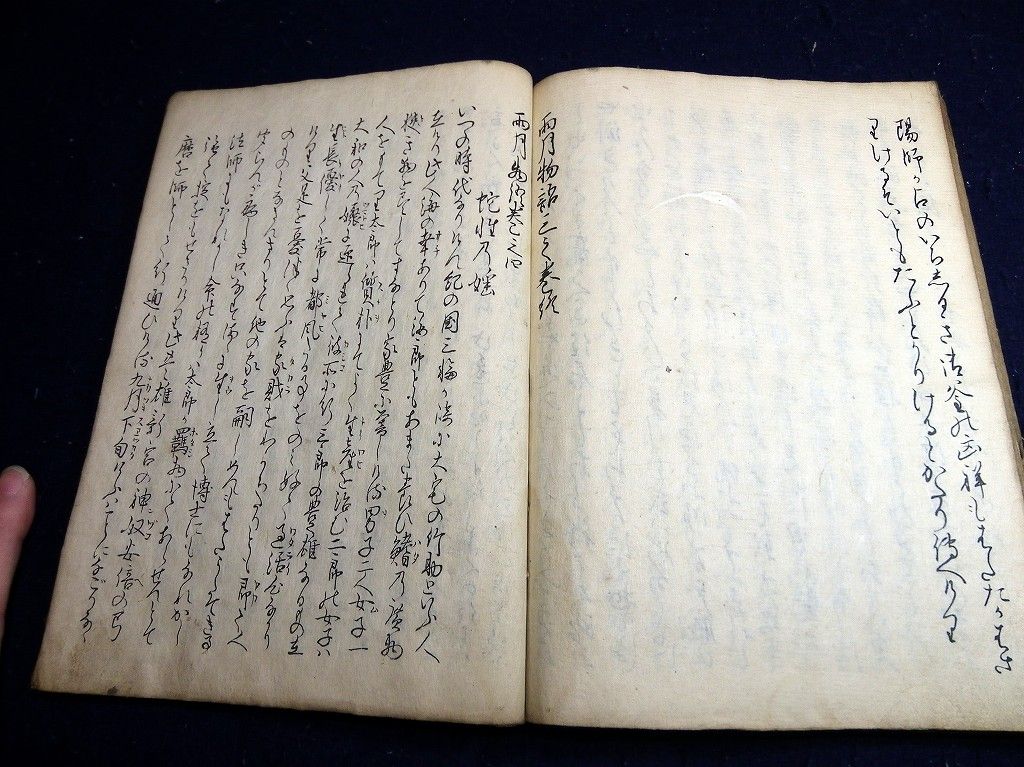 陽師が占のいちじるき御釜の凶祥もはたたがはざ
りけるぞいともたふとかりけるとかたり傳へけり
雨月物語三之巻終
雨月物語巻之四
蛇性の婬
いつの時代なりけん紀の國三輪が崎に大宅の竹助といふ人
在けり此人海の幸ありて海郎どもあまた養ひ鰭の廣物
狭き物を尽してすなどり家豊に暮しける男子二人女子一
人をもてり太郎は質朴にてよく生産を治む二郎の女子は
大和の人の嬬問に迎られて彼所にゆく三郎の豊雄なるものあり
生長優しく常に都風たる事をのみ好て過活心なかり
けり父是を憂つつ思ふは家財をわかちたりとも即人
のものとなさんさりとて他の家を嗣しめんもはたうたてき事
聞らんが病しき只なすままに生し立て博士にもなれかし
法師にもなれかし命の極は太郎が羈物にてあらせんとて
強て掟をもせざりけり此豊雄新宮の神奴安倍の弓
麿を師として行通ひける九月下旬けふはことになごりなく